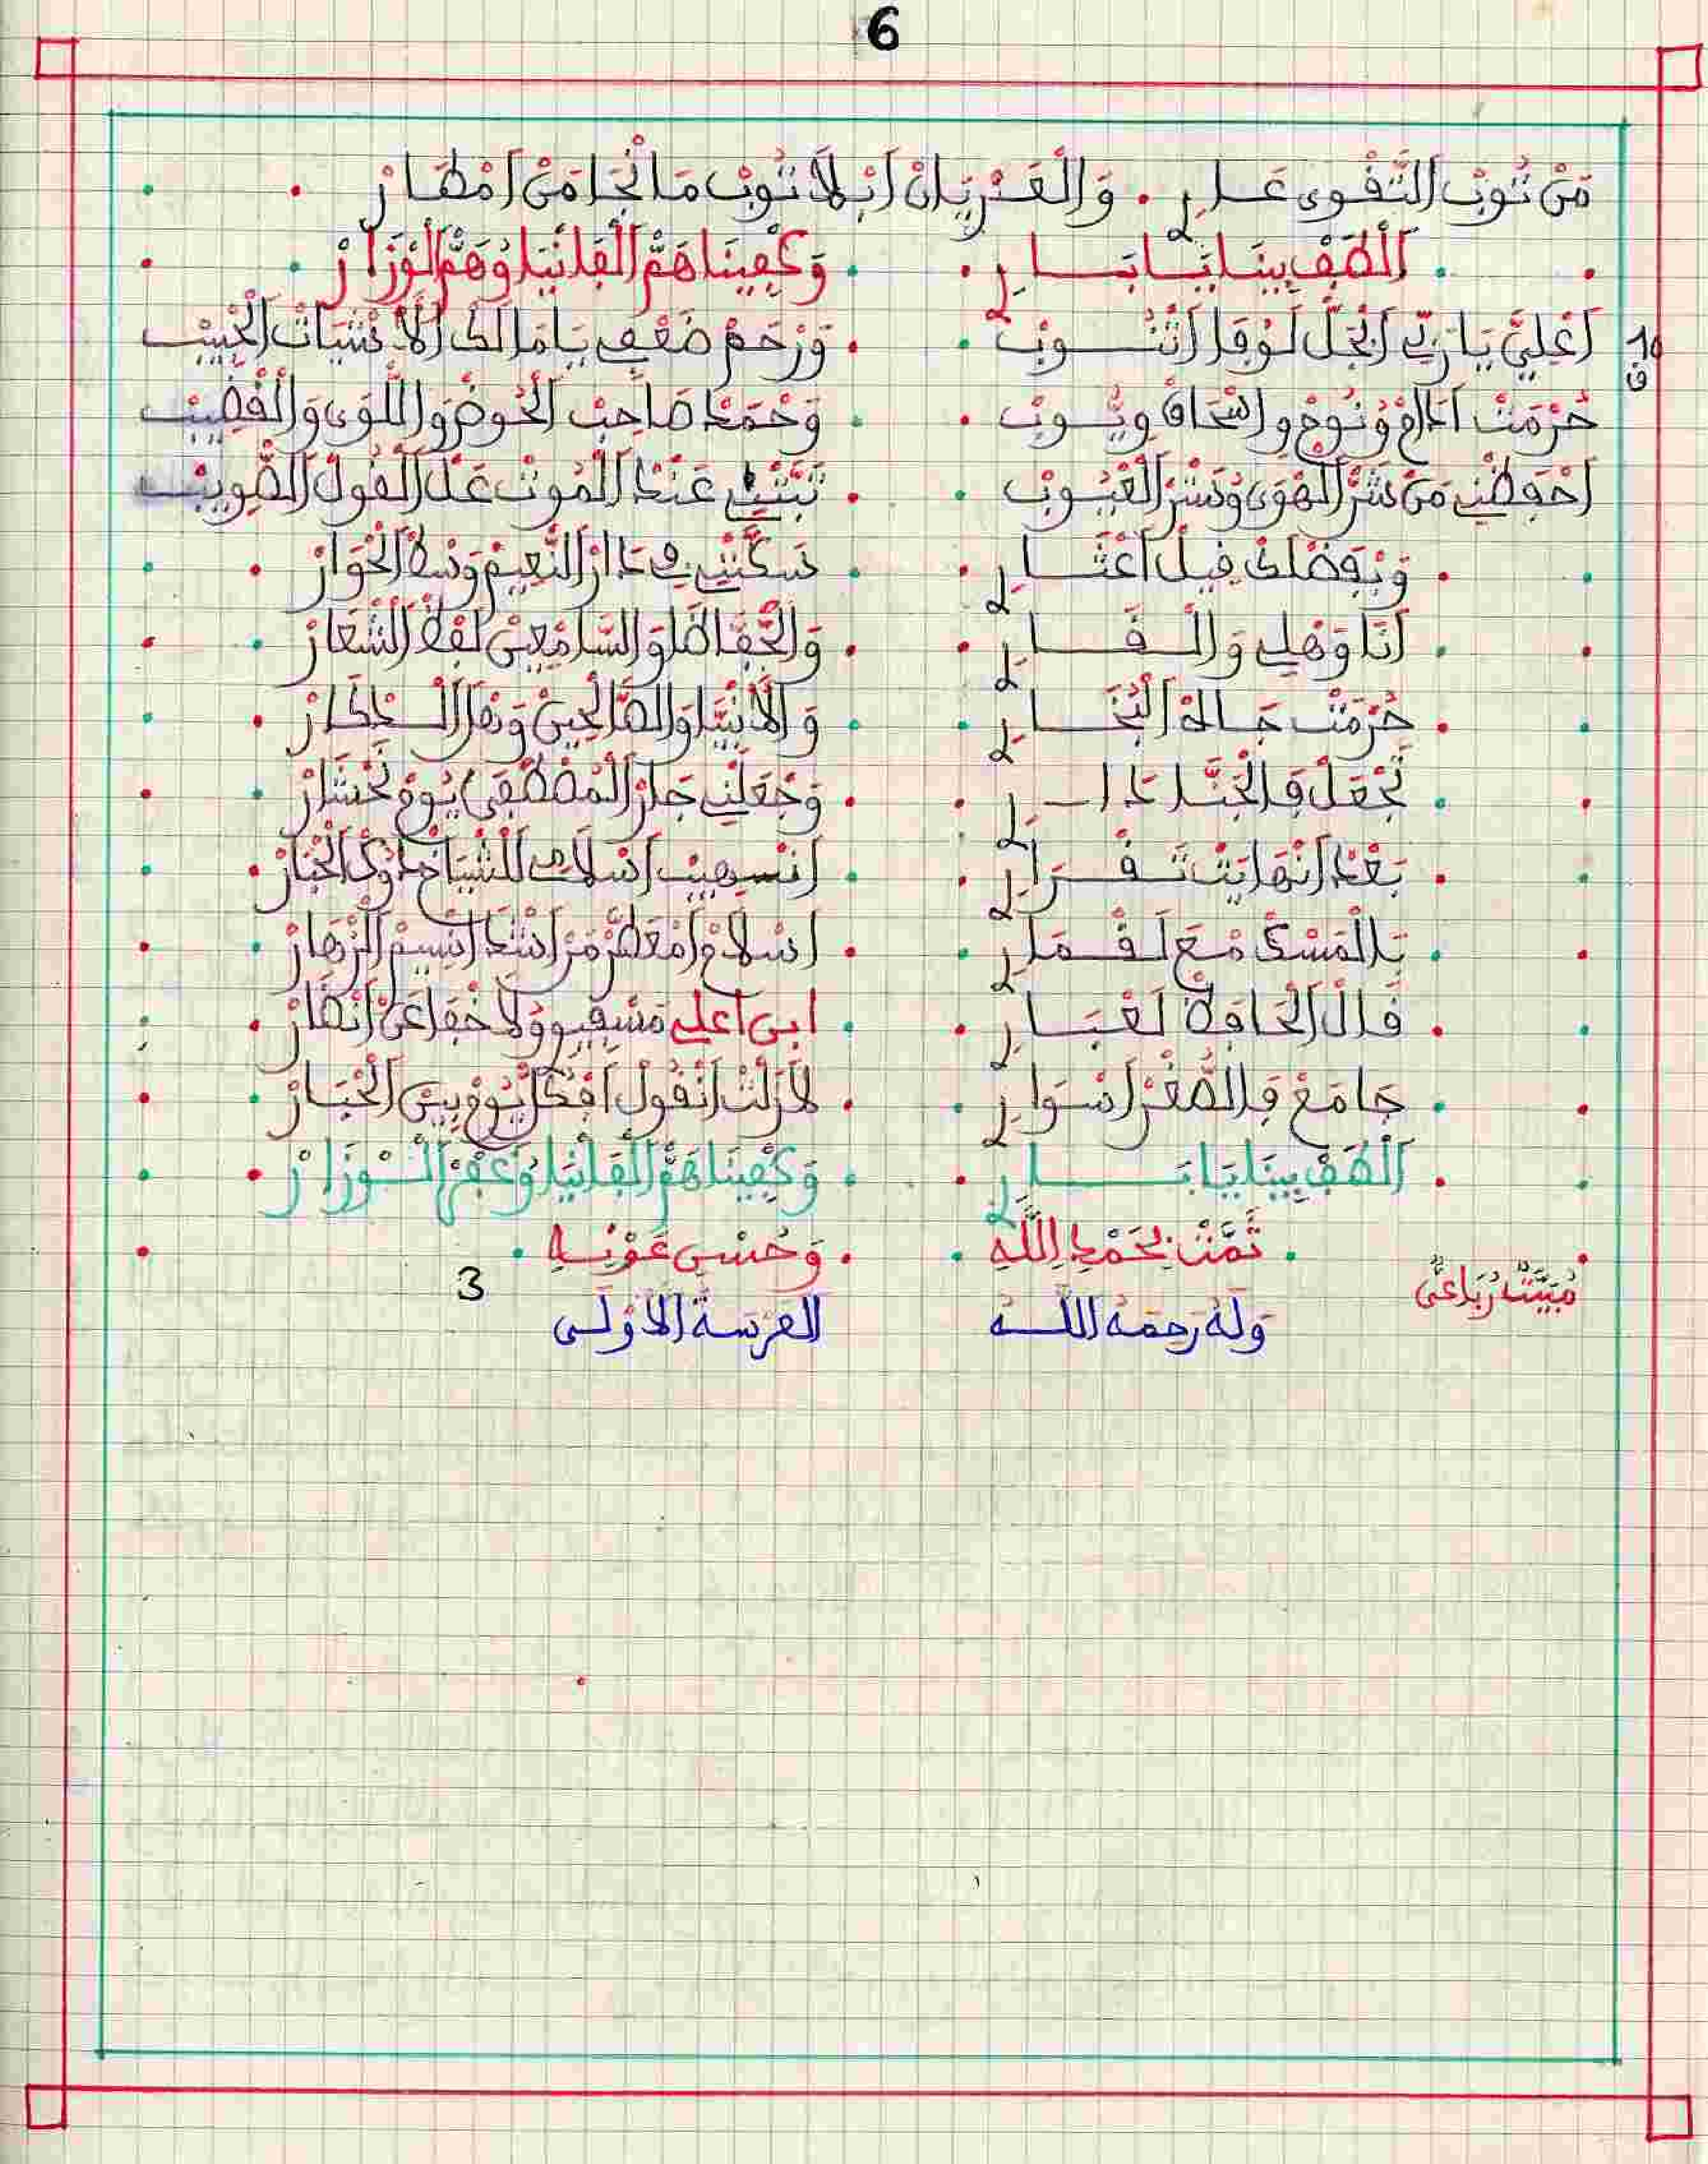 6
مَنْ تُوبْ التَّقْوى عَــارِي . وَالْعَرْيَانْ ابْلَا تُوبْ مَا انْجَا مَنْ امْطَارْ
اَلْطَفْ بِينَا يَا بَــارِي . وَكْفِينَا هَمّْ الْفَانْيَا وُهَمّْ الْوْزَارْ
10 ف
اَعْلِيَّ يَا رَبِّي اَلْجَلّْ لَوْقَا اَنْتُــوبْ . وَرْحَمْ ضَعْفِي يَا مَالَكْ الْحْبِيبْ
حُرْمَتْ آدَامْ وُنُوحْ وِاسْحَاقْ وِيُّــوبْ . وَحْمَدْ صَاحِبْ الْحَوضْ وَاللّْوَى وَالْقْضِيبْ
اَحْفَظْنِي مَنْ شَرّْ الْهْوَى وُشَرّْ الْعْيُــوبْ . تَبَّتْنِي عَنْدْ الْمُوتْ عَلْ الْقُولْ الصّْوِيبْ
وَبْفَضْلَكْ قِيلْ اعْثَــارِي . سَكَّنِّي فِي دَارْ النّْعِيمْ وَسْطْ الْحْوَارْ
اَنَا وَهْلِي وَالْــقَــارِي . وَالْحُفَّاضَا وَالسَّامْعِينْ لَفْظْ الشّْعَارْ
حُرْمَتْ جَاهْ الْبُخَــارِي . وَالَانْبْيَا وَالصَّالْحِينْ وَهْلْ الْــدْكَارْ
تَجْعَلْ فَالْجَنَّا دَا ـ رِي . وَجْعَلْنِي جَارْ الْمُصْطْفَى يُومْ نَحْشَارْ
بَعْدْ انْهَايَتْ تَــسْفْــرَارِي . اَنْسِهِيبْ اسْلَامِي لَلشّْيَاخْ دُوكْ الْحْبَارْ
بَالْمَسْكْ مْعَ لَــقْــمَارِي . اَسْلَامْ امْعَطَّرْ مَنْ اشْدَا انْسِيمْ الزّْهَارْ
قَالْ الْحَافَظْ لَعْبَــارِي . ابن اعلي مَسْفِيوِي وُلَا خْفَا عَنْ انْظَارْ
جَامَعْ فَالصُّغْرْ اسْوَارِي . لَازَلْتْ انْقُولْ افْكُلّْ يُومْ بِينْ الْحْبَارْ
اَلْطَفْ بِينَا يَا بَــارِي . وَكْفِينَا هَمّْ الْفَانْيَا وُغْفَرْ الْــوْزَارْ
تَمَّتْ بِحَمْدِ اللَّهِ . وَحُسْنِ عَوْنِــهِ
مُبَيَّتْ رُبَاعِي 3
وَلَهُ رحمه اللــه العرسة الاولــى